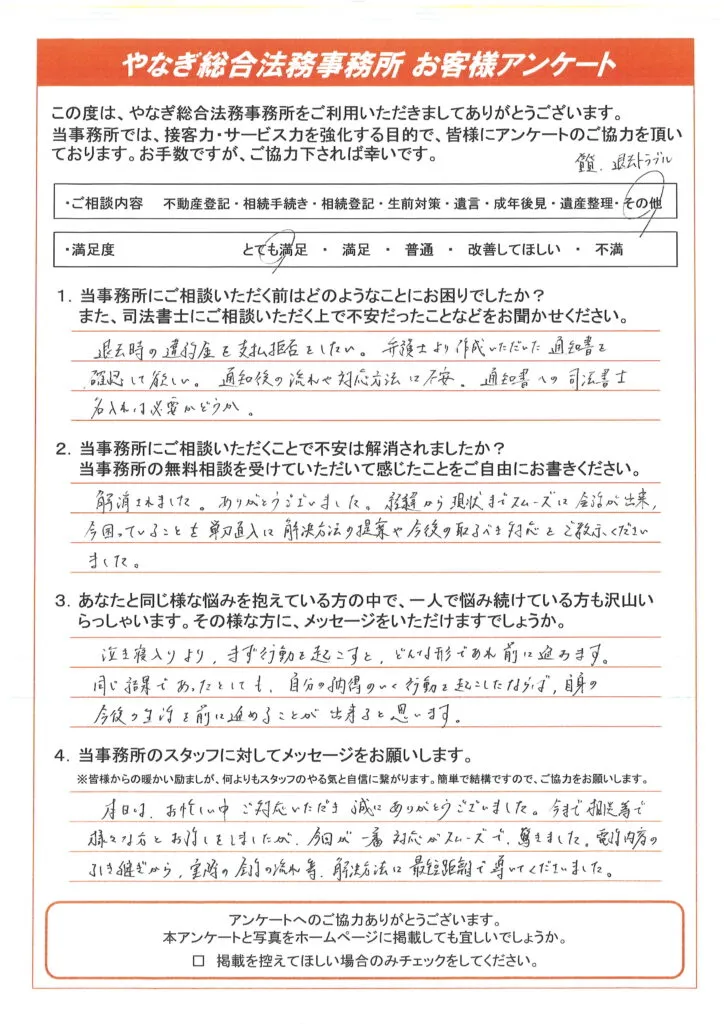 やなぎ総合法務事務所 お客様アンケート
この度は、やなぎ総合法務事務所をご利用いただきましてありがとうございます。
当事務所では、接客力・サービス力を強化する目的で、皆様にアンケートのご協力を頂い
ております。お手数ですが、ご協力下されば幸いです。
賃貸、退去トラブル
・ご相談内容 不動産登記・相続手続き・相続登記・生前対策・遺言・成年後見・遺産整理・その他
・満足度 とても満足 ・ 満足 ・ 普通 ・ 改善してほしい ・ 不満
1．当事務所にご相談いただく前はどのようなことにお困りでしたか？
また、司法書士にご相談いただく上で不安だったことなどをお聞かせください。
退去時の違約金を支払拒否をしたい。弁護士より作成いただいた通知書を
確認して欲しい。通知後の流れや対応方法に不安。通知書への司法書士
名入れは必要かどうか。
2．当事務所にご相談いただくことで不安は解消されましたか？
当事務所の無料相談を受けていただいて感じたことをご自由にお書きください。
解消されました。ありがとうございました。経緯から現状までスムーズに会話が出来、
今困っていることを単刀直入に解決方法の提案や今後の取るべき対応をご教示ください
ました。
3．あなたと同じ様な悩みを抱えている方の中で、一人で悩み続けている方も沢山い
らっしゃいます。その様な方に、メッセージをいただけますでしょうか。
泣き寝入りより、まず行動を起こすと、どんな形であれ前に進めます。
同じ結果であったとしても、自分の納得のいく行動を起こしたならば、自身の
今後の生活を前に進めることが出来ると思います。
4．当事務所のスタッフに対してメッセージをお願いします。
※皆様からの暖かい励ましが、何よりもスタッフのやる気と自信に繋がります。簡単で結構ですので、ご協力をお願いします。
本日は、お忙しい中ご対応いただき誠にありがとうございました。今まで相談等で
様々な方とお話しをしましたが、今回が一番対応がスムーズで、驚きました。電話内容の
引き継ぎから、実際の会話の流れ等、解決方法に最短距離で導いてくださいました。
アンケートへのご協力ありがとうございます。
本アンケートと写真をホームページに掲載しても宜しいでしょうか。
□ 掲載を控えてほしい場合のみチェックをしてください。